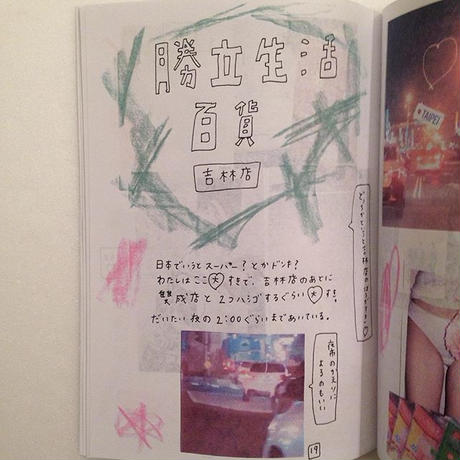 勝立生活
百貨
吉林店
日本でいうとスーパー?とかドンキ?
わたしはここ大すきで、吉林店のあとに
雙成店と2つハシゴするぐらい大すき。
だいたい夜の2:00ぐらいまであいている。
夜市のかえりに
よるのもいい
19
TAIPEI